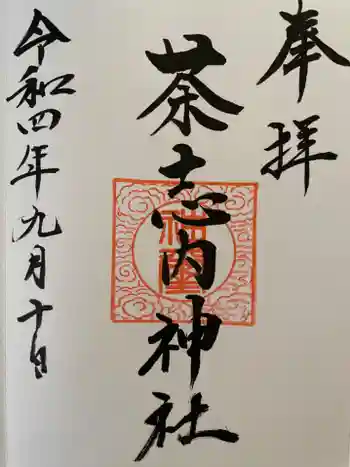 奉拝
茶志内神社
神璽
令和四年九月十日